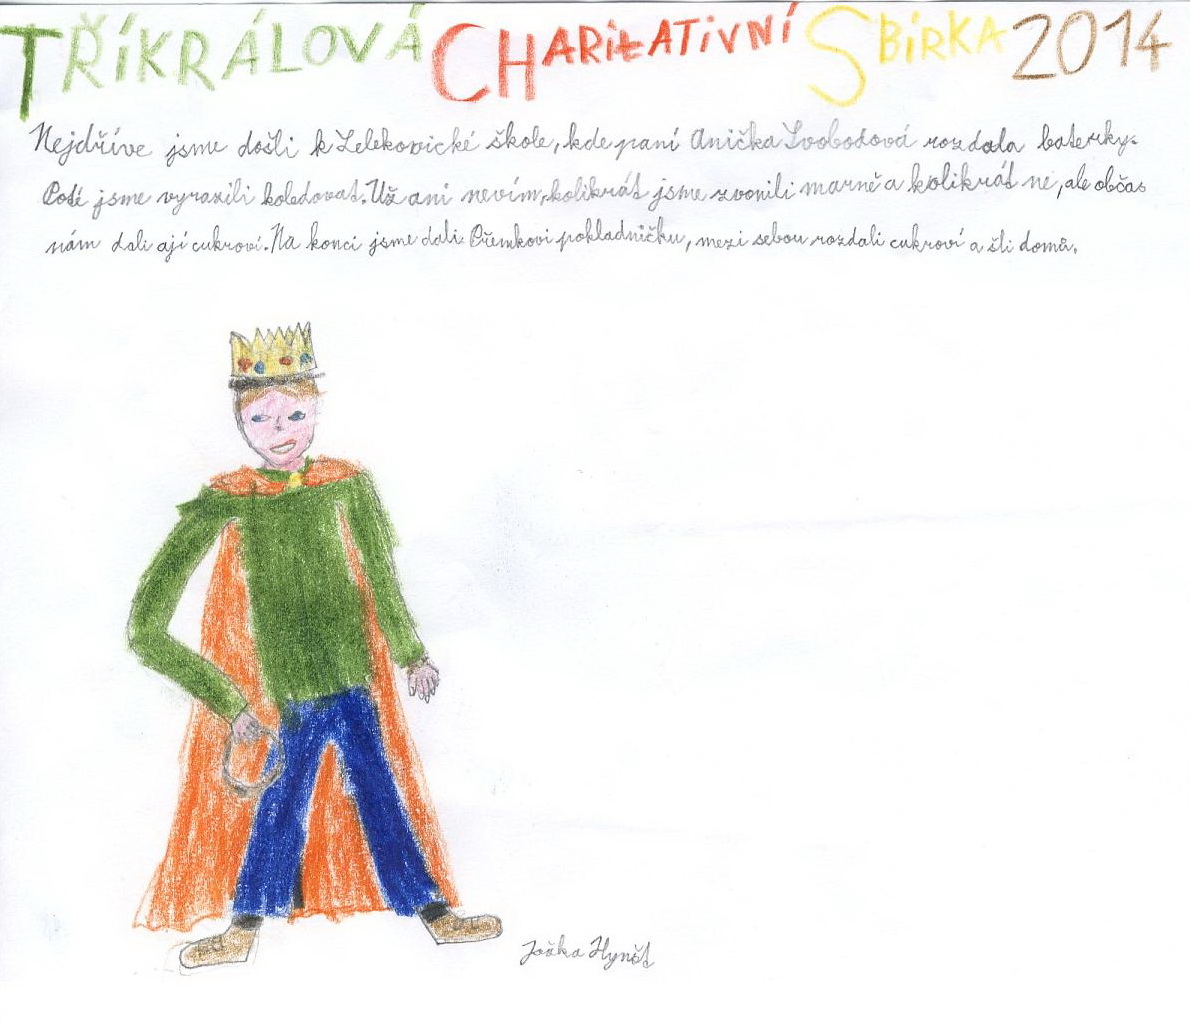 TŘÍKRÁLOVÁ CHARITATIVNÍ SBÍRKA 2014
Nejdříve jsme došli k Lelekovické škole, kde paní Anička Svobodová rozdala baterky.
Poté jsme vyrazili koledovat. Už ani nevím, kolikrát jsme zvonili marně a kolikrát ne, ale občas
nám dali ají cukroví. Na konci jsme dali Přemkovi pokladničku, mezi sebou rozdali cukroví a šli domů.
Joška Hynšt